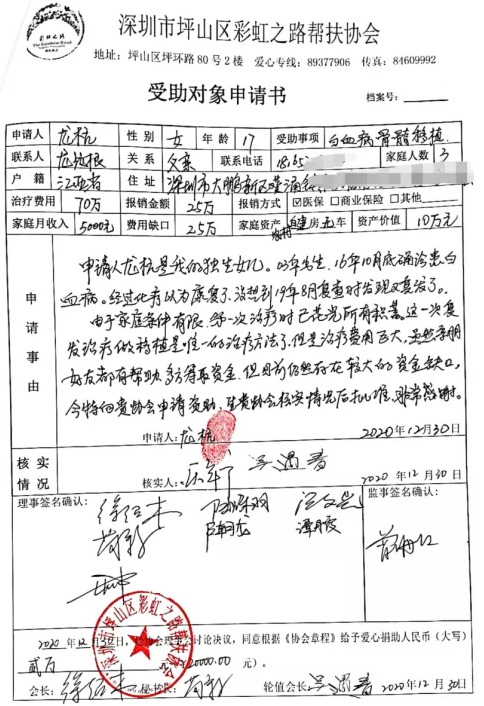 彩虹之路
The Rainbow Road
深圳市坪山区彩虹之路帮扶协会
地址：坪山区坪环路80号2楼 爱心专线：89377906 传真：84609992
受助对象申请书
档案号：
申请人 龙杭 性别 女 年龄 17 受助事项 白血病骨髓移植
联系人 龙 根 关系 父亲 联系电话 家庭人数 3
户籍 江西省 住址 深圳市大鹏新区葵涌
治疗费用 70万 报销金额 25万 报销方式 ☑医保 □商业保险 □其他
家庭月收入 5000元 费用缺口 25万 家庭资产 农村自建房无车 资产价值 10万元
申请事由
申请人龙杭是我的独生女儿。03年生，16年10月底确诊患白
血病。经过化疗以为康复了，没想到19年8月复查时发现又复发了。
由于家庭条件有限，第一次治疗时已花光所有积蓄。这一次复
发治疗做移植是唯一的治疗方法了。但是治疗费用巨大，虽然亲朋
好友都有帮助，多方筹取资金，但目前仍然存在较大的资金缺口，
今特向贵协会申请资助，望贵协会核实情况后批准，非常感谢。
申请人：龙杭 2020年12月30日
核实情况
核实人： 2020年12月30日
理事签名确认：
监事签名确认：
深圳市坪山区彩虹之路帮扶协会
2020年12月30日，经协会理事会讨论决议，同意根据《协会章程》给予爱心捐助人民币（大写）
贰万 20000.00元）。
会长： 秘书长： 轮值会长： 2020年12月30日